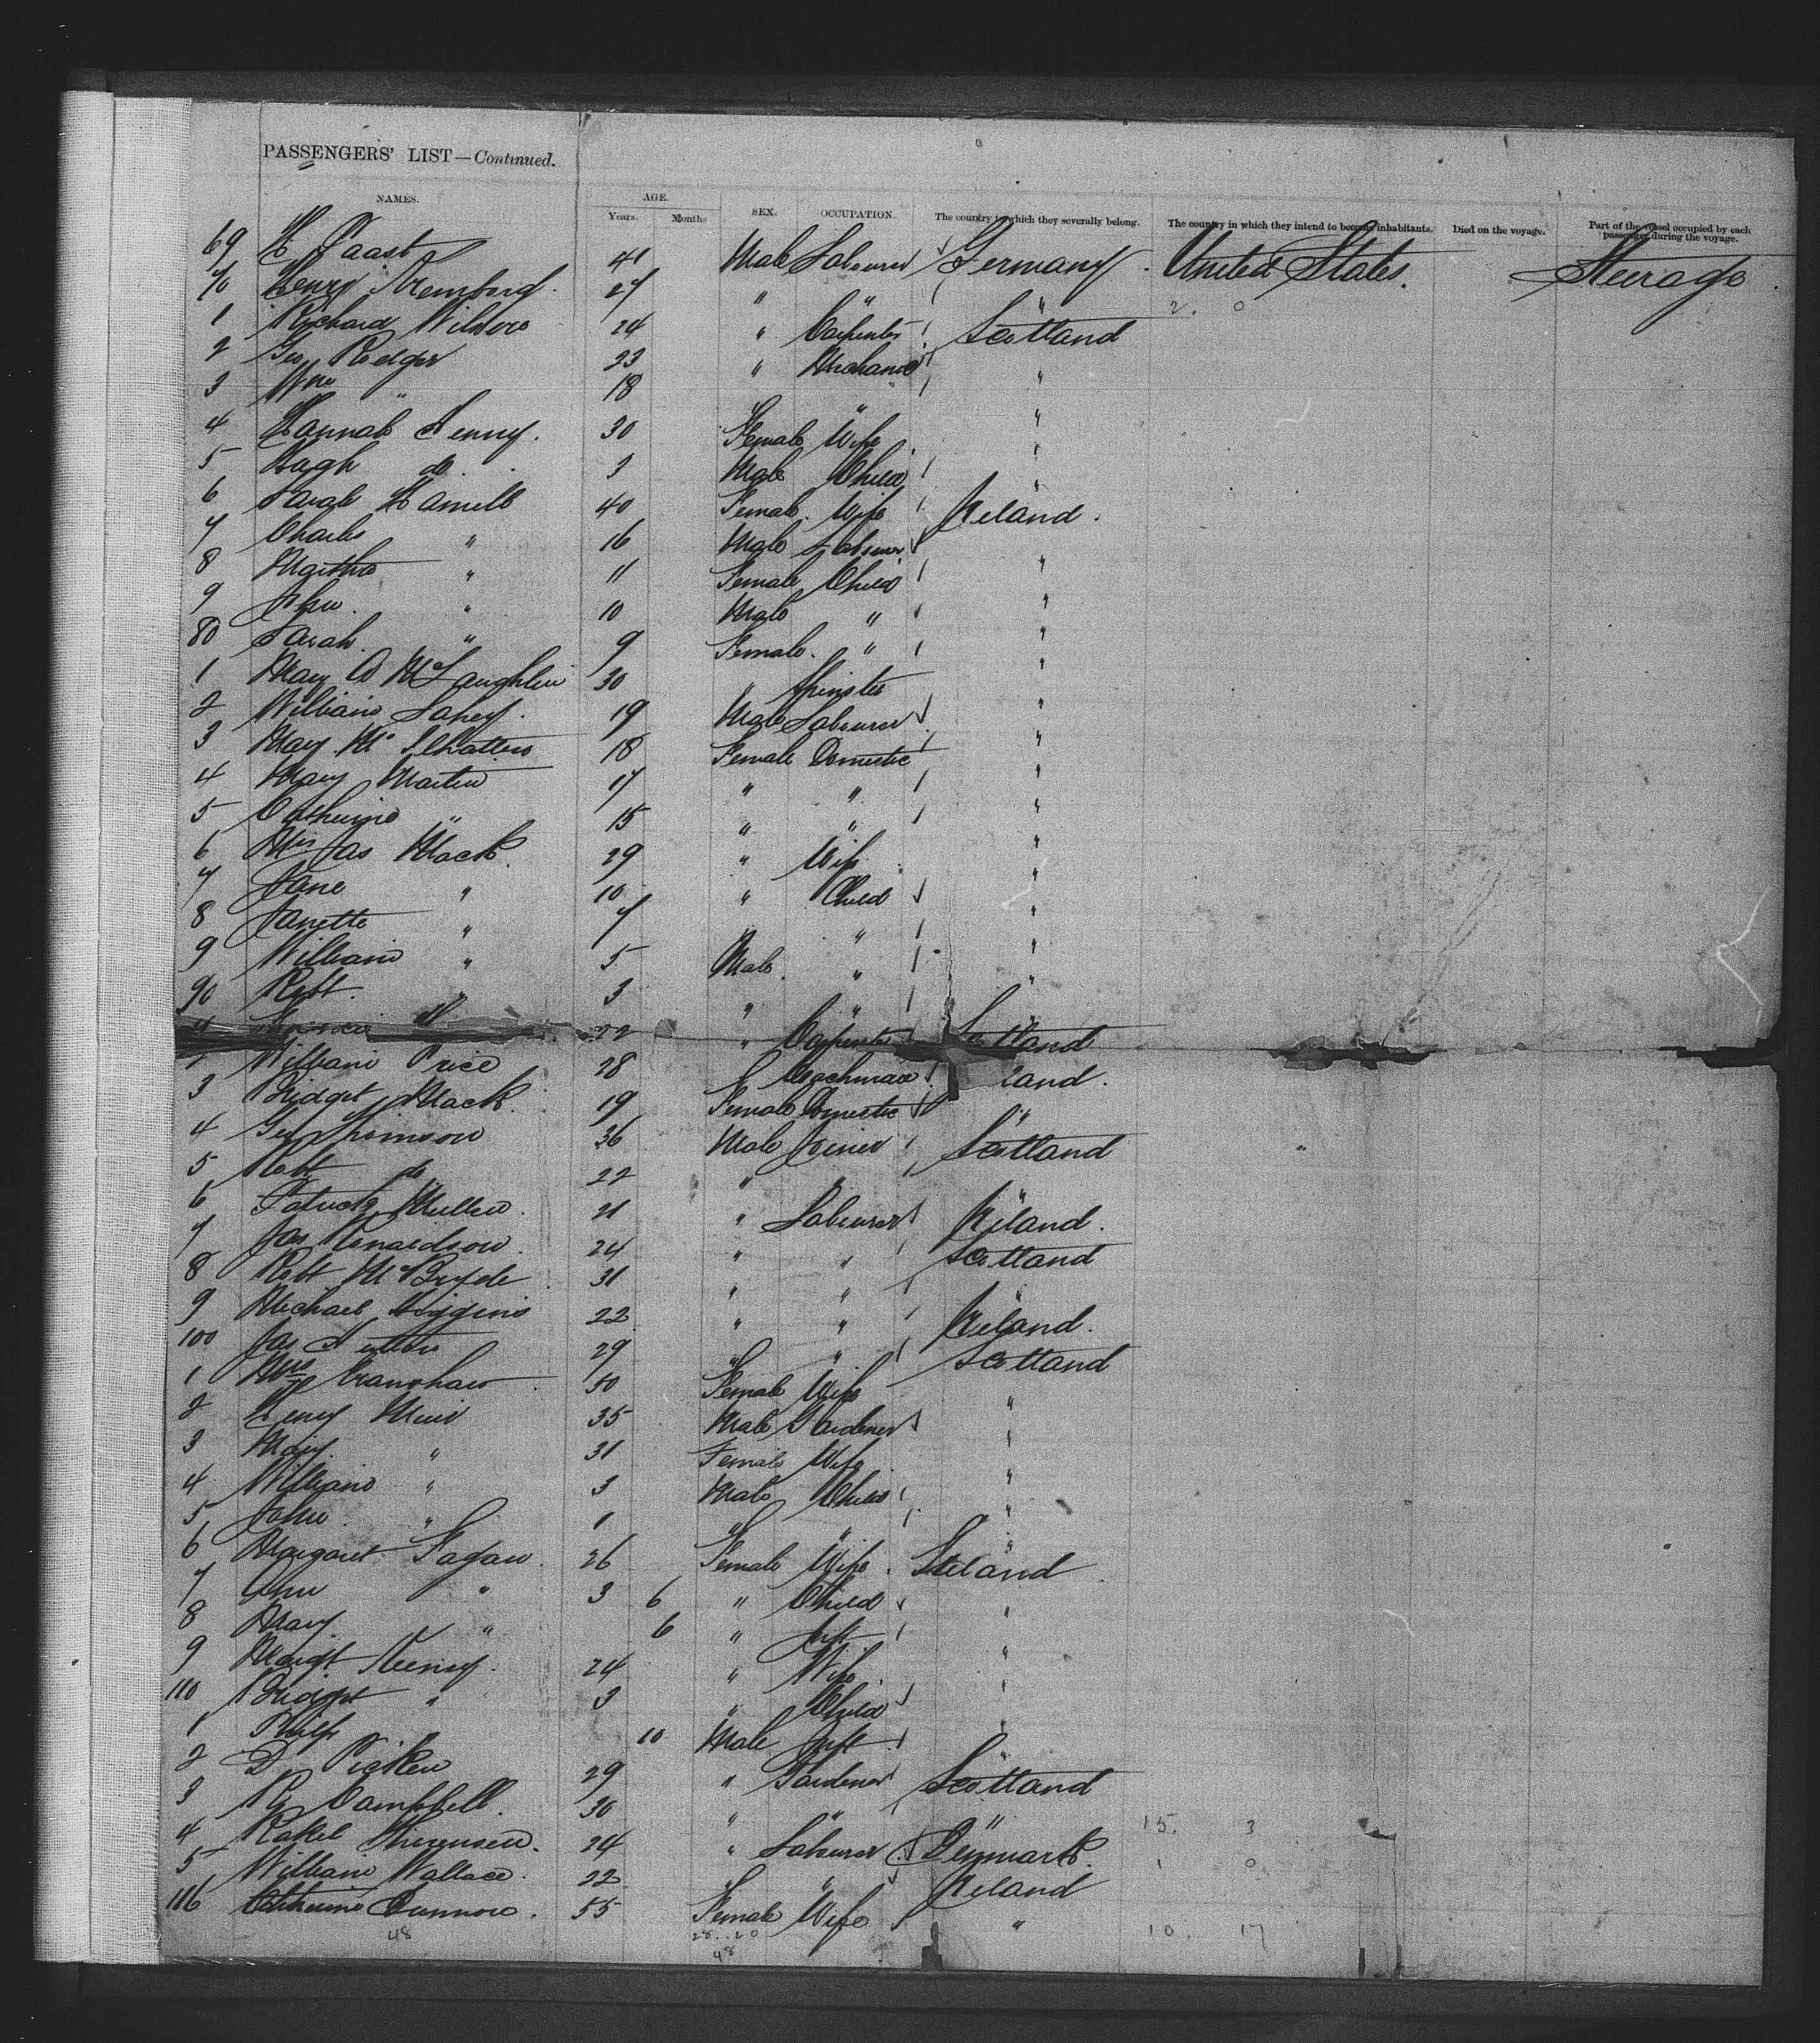 PASSENGERS' LIST—Continued.
NAMES. AGE. Years. Months SEX. OCCUPATION. The country to which they severally belong. The country in which they intend to become inhabitants. Died on the voyage. Part of the vessel occupied by each passenger during the voyage.
69 H 41 Male Labourer Germany United States. Steerage
70 Henry 27 " " " 2. 0
1 Richard 24 " Carpenter Scotland
2 Geo Rodger 23 " Mechanic "
3 Wm " 18 " "
4 Hannah Kenny. 30 Female Wife "
5 Hugh do. 3 Male Child "
6 Sarah Hamill 40 Female Wife Ireland.
7 Charles " 16 Male Labourer "
8 Martha " 11 Female Child "
9 John " 10 Male " "
80 Sarah " 9 Female " "
1 Mary A McLaughlin 30 " Spinster "
2 William 19 Male Labourer "
3 Mary Mc 18 Female Domestic "
4 Mary Martin 17 " " "
5 Catherine " 15 " " "
6 Mrs Jas Mack 29 " Wife "
7 Jane " 10 " Child "
8 Janette " 7 " "
9 William " 5 Male " "
90 Robt. " 3 " "
22 " Carpenter Scotland
William Price 28 Coachman land.
3 Bridget Mack 19 Female Domestic "
4 Geo Thomson 36 Male Joiner Scotland
5 Robt do 22 " " "
6 Patrick Mullen 21 " Labourer Ireland.
7 Jas Ronaldson 24 " " Scotland
8 Robt McBryde 31 " " "
9 Michael Higgins 22 " " Ireland.
100 Jas 29 " " Scotland
1 Mrs Cranshaw 50 Female Wife "
2 Henry Muir 35 Male Gardener "
3 Mary " 31 Female Wife "
4 William " 3 Male Child "
5 John " 1 " " "
6 Margaret Fagan 26 Female Wife Ireland
7 " 3 6 " Child "
8 Mary " 6 " Inft "
9 Margt Kenny 24 " Wife "
110 Bridget " 3 " Child "
1 Philip 10 Male Inft "
2 D Picken 29 " Gardener Scotland
3 R Campbell 30 " " " 15. 3
4 24 " Labourer Denmark 1 0
5 William Wallace 22 " " Ireland
116 Catherine 55 Female Wife " 10. 17
48 28..20
48